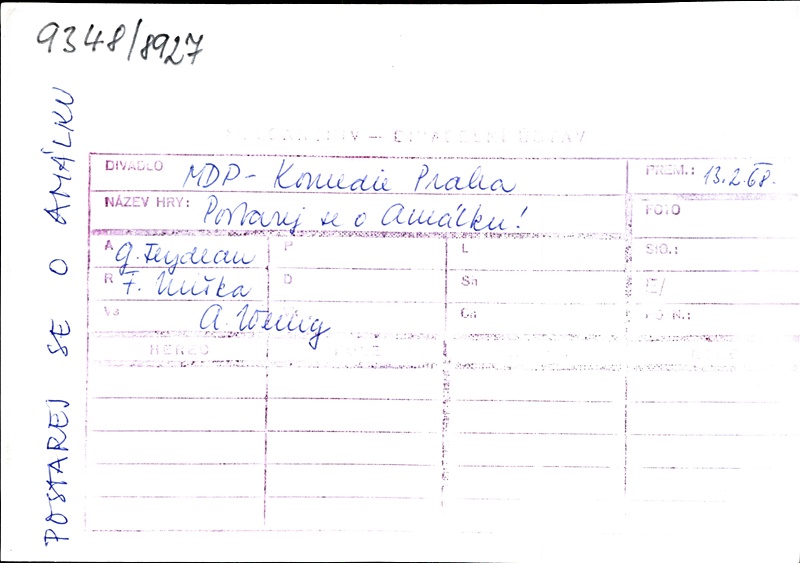 9348/8927
POSTAREJ SE O AMÁLKU
DIVADELNÍ ÚSTAV
DIVADLO MDP - Komedie Praha PREM.: 13.2.68.
NÁZEV HRY: Postarej se o Amálku! FOTO
A G. Feydeau P L SIG.:
R F. Miška D Sn E/
A. Wenig
HEREC